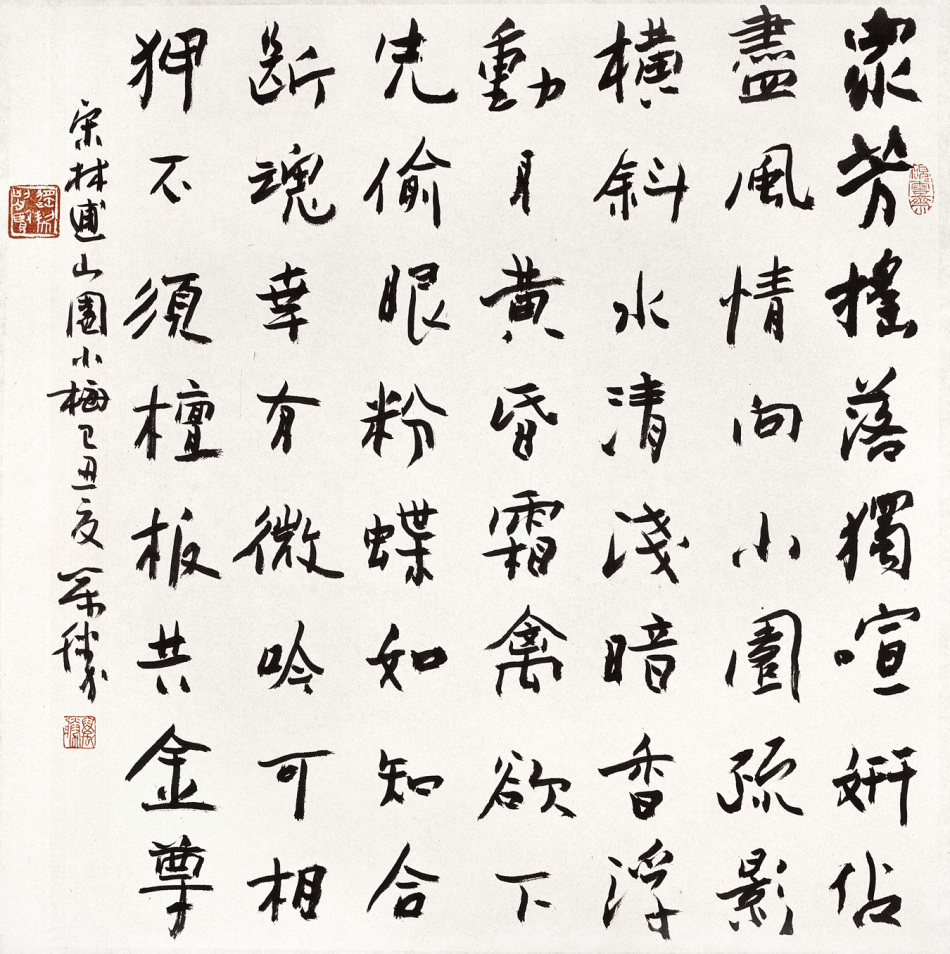 眾芳搖落獨喧妍佔
盡風情向小園疏影
橫斜水清淺暗香浮
動月黃昏霜禽欲下
先偷眼粉蝶如知合
斷魂幸有微吟可相
狎不須檀板共金尊
宋林逋山園小梅己丑夏